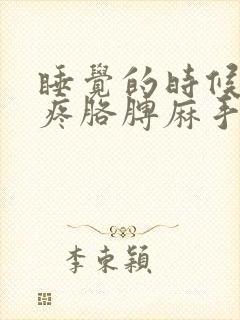 睡覺的時候
疼胳脾麻手
李東穎